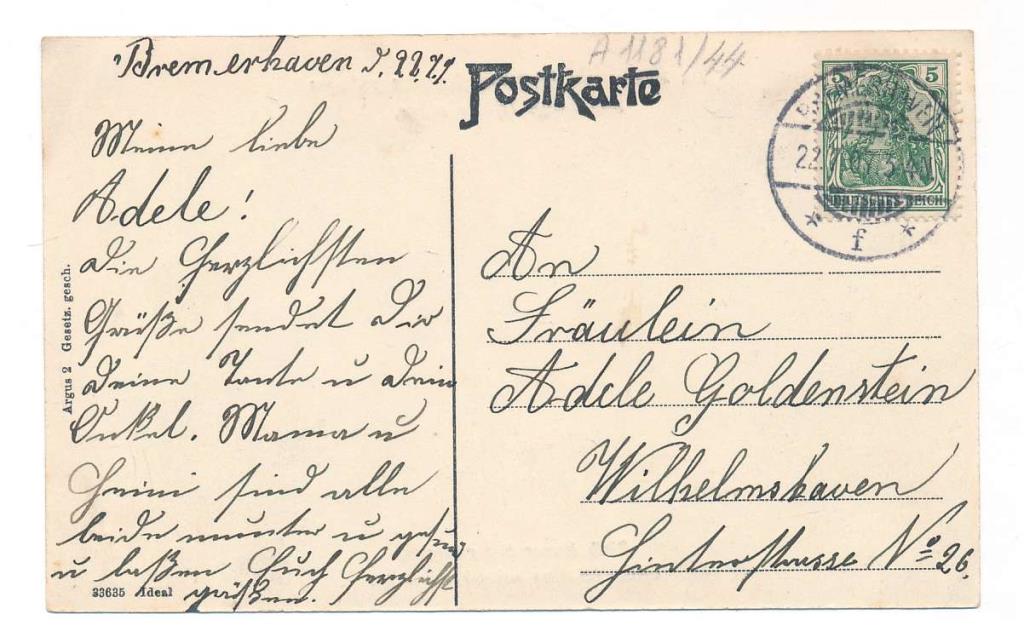 Bremerhaven d. 22.7.
A 1181/44
Postkarte
Meine liebe
Adele!
die Herzlichsten
Grüße sendet Dir
Deine Tante u Dein
Onkel. Mama u
Heini sind alle
beide munter u gesund
u laßen Euch Herzlichst
grüßen.
Argus 2 Gesetz. gesch.
33635 Ideal
5
DEUTSCHES REICH
BREMERHAVEN
22.7.
* f *
An
Fräulein
Adele Goldenstein
Wilhelmshaven
Hinterstrasse No 26.